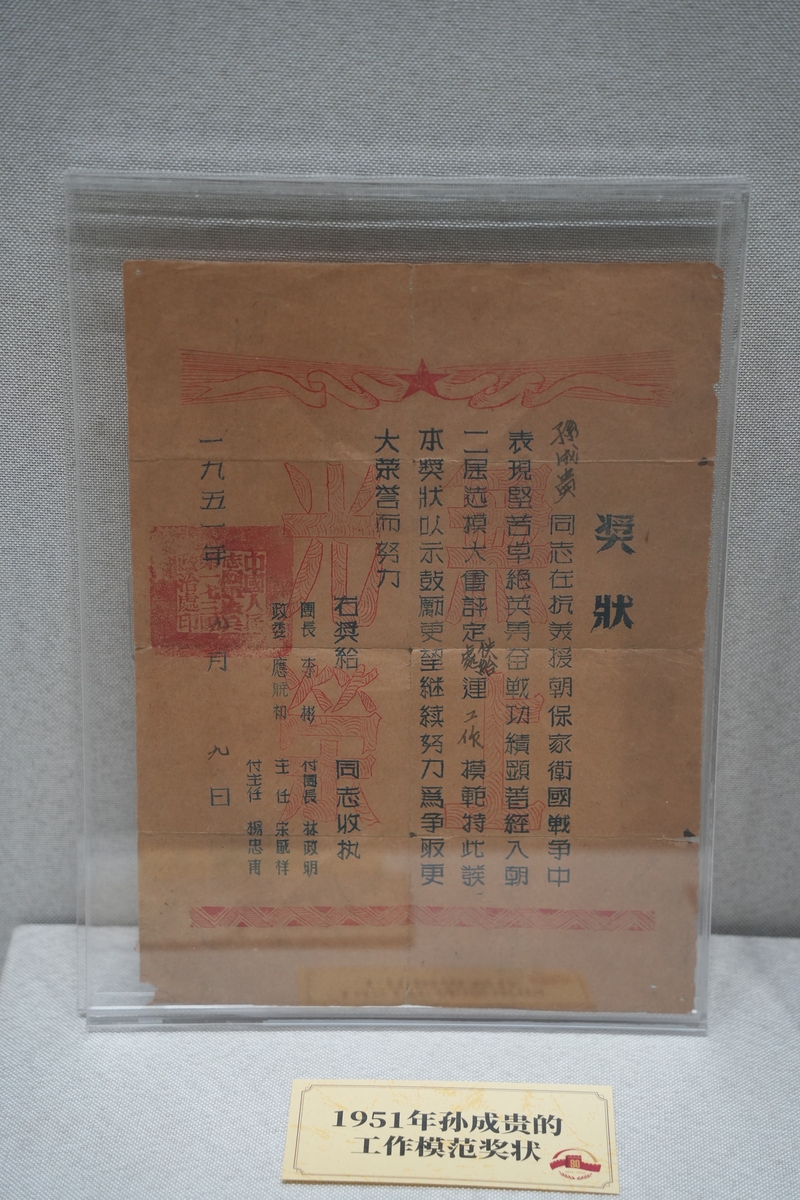 獎狀
孫成贵同志在抗美援朝保家衛國戰争中
表現堅苦卓絕英勇奋戰功績顕著經入朝
二届选模大會評定供給處運工作模範特此發
本獎狀以示鼓勵更望继续努力爲争取更
大荣誉而努力
右奨給 同志收执
團長 李彬 付團長 林政明
政委 應 主任 宋 祥
付主任 楊忠
一九五一年 月九日
無上
光榮
中國人民
志願
政治處印
1951年孙成贵的
工作模范奖状